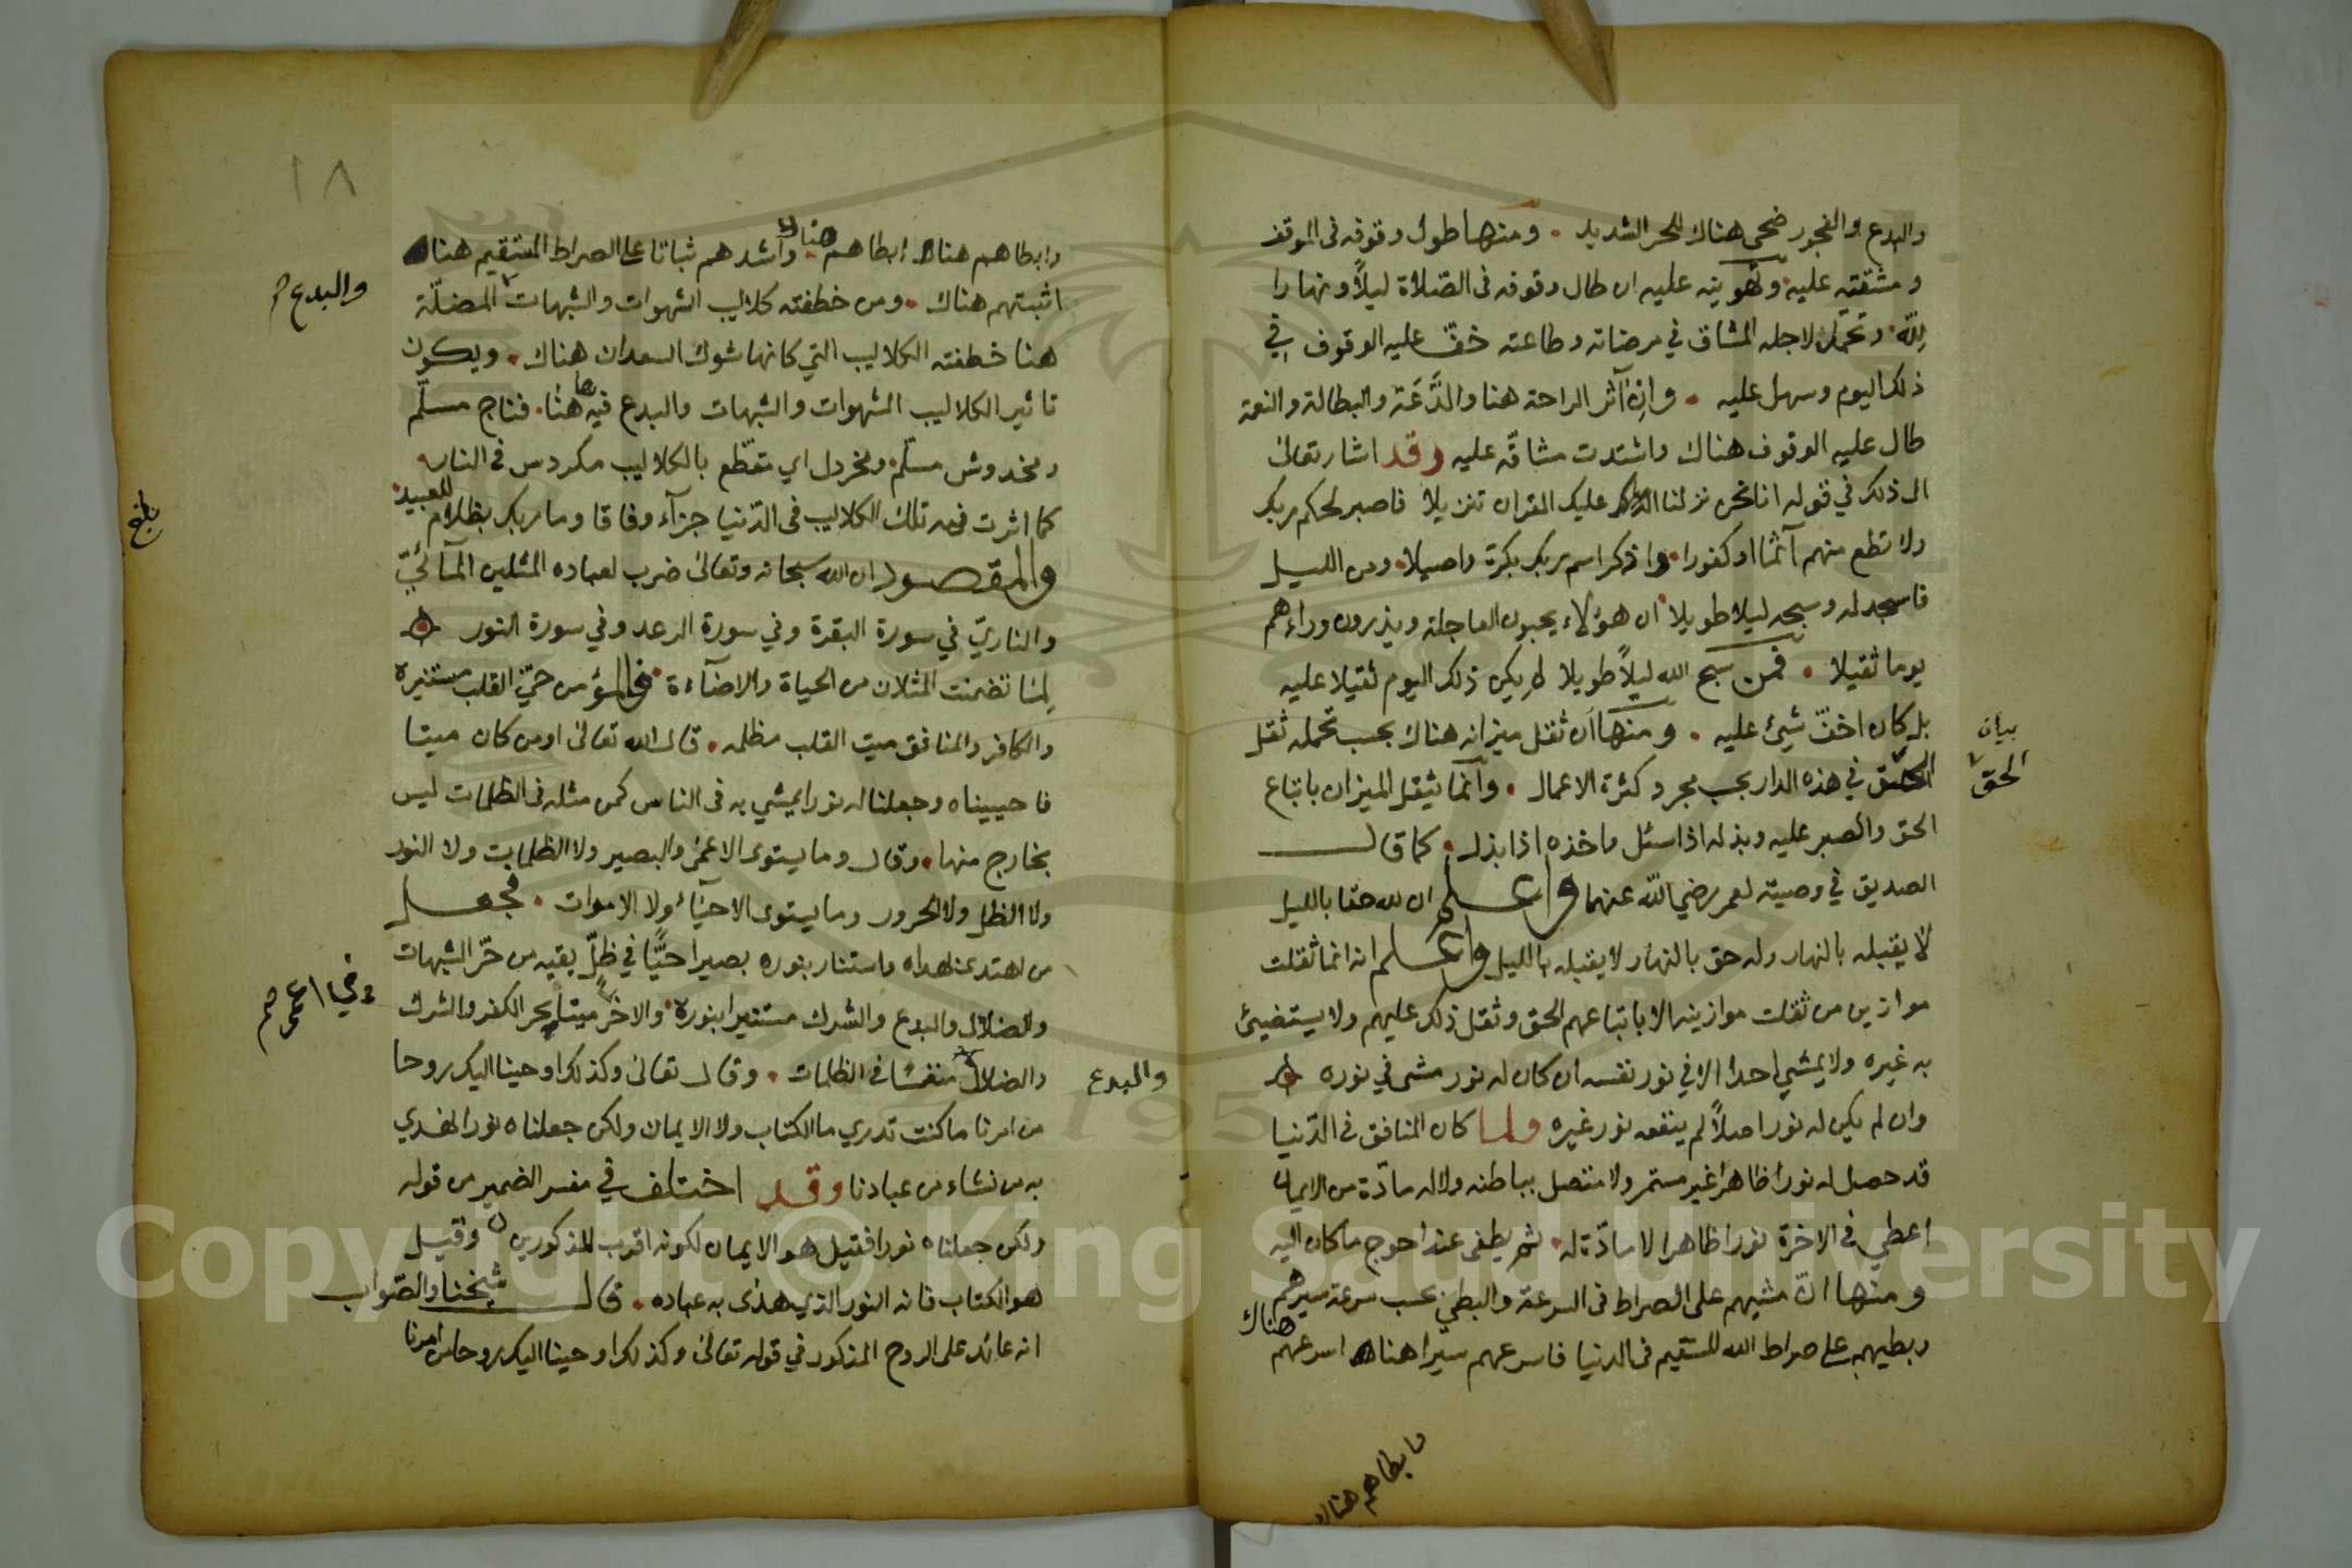 والبدع والفجور ضحى هناك للحر الشديد . ومنها طول وقوفه فى الموقف
ومشقته عليه وتهوينه عليه ان طال وقوفه فى الصلاة ليلاً ونهارا
لله وتحمل لاجله المشاق في مرضاته وطاعته خفّ عليه الوقوف في
ذلك اليوم وسهل عليه . وان آثر الراحة هنا والدَّعَة والبطالة والنعمة
طال عليه الوقوف هناك واشتدت مشاقّه عليه وقد اشار تعالى
الى ذلك في قوله انا نحن نزلنا عليك القران تنزيلا فاصبر لحكم ربك
ولا تطع منهم آثما او كفورا واذكر اسم ربك بكرة واصيلا ومن الليل
فاسجد له وسبحه ليلا طويلا ان هؤلاء يحبون العاجلة ويذرون وراءهم
يوما ثقيلا . فمن سبح الله ليلاً طويلا لم يكن ذلك اليوم ثقيلا عليه
بل كان اخفّ شيئ عليه . ومنها ان ثقل ميزانه هناك بحسب تحمله ثقل
بيان
الحق
الحق في هذه الدار بحسب مجرد كثرة الاعمال . وانما يثقل الميزان باتباع
الحق والصبر عليه وبذله اذا سئل واخذه اذا بذل . كما قال
الصديق في وصيته لعمر رضي الله عنهما واعلم ان لله حقا بالليل
لا يقبله بالنهار وله حق بالنهار لا يقبله بالليل واعلم انه انما ثقلت
موازين من ثقلت موازينه الا باتباعهم الحق وثقل ذلك عليهم ولا يستضيئ
به غيره ولا يمشي احد الا في نور نفسه ان كان له نور مشى في نوره
وان لم يكن له نور اصلاً لم ينفعه نور غيره ولما كان المنافق فى الدّنيا
قد حصل له نورا ظاهرا غير مستمر ولا متصل بباطنه ولا له مادّة من الايمان
اعطي فى الاخرة نورا ظاهرا لا مادّة له . ثم يطفى عند احوج ما كان اليه
ومنها انّ مشيهم على الصراط فى السرعة والبطئ بحسب سرعة سيرهم
وبطيهم على صراط الله المستقيم فى الدنيا فاسرعهم سيرا هنا اسرعهم هناك
وابطاهم هنا
١٨
وابطاهم هنا ابطاهم هناك واشدهم ثباتا على الصراط المستقيم هنا
اثبتهم هناك . ومن خطفته كلاليب الشهوات والشبهات المضلّة
والبدع
هنا خطفته الكلاليب التي كانها شوك السعدان هناك . ويكون
تاثير الكلاليب الشهوات والشبهات والبدع فيه هنا . فناج مسلّم
ومخدوش مسلّم ومخردل اي متقطّع بالكلاليب مكردس فى النار
كما اثرت فيه تلك الكلاليب فى الدّنيا جزآء وفاقا وما ربك بظلام للعبيد
بلغ
والمقصود ان الله سبحانه وتعالى ضرب لعباده المثلين المآئيّ
والناريّ في سورة البقرة وفي سورة الرعد وفي سورة النور
لما تضمنت المثلان من الحياة والاضآءة فالمؤمن حيّ القلب مستنيره
والكافر والمنافق ميت القلب مظلمه . قال الله تعالى اومن كان ميتا
فاحييناه وجعلنا له نورا يمشي به فى الناس كمن مثله فى الظلمات ليس
بخارج منها . وقال وما يستوى الاعمى والبصير ولا الظلمات ولا النور
ولا الظل ولا الحرور وما يستوى الاحيآء ولا الاموات . فجعل
من اهتدى بهداه واستنار بنوره بصيرا حيًّا في ظلّ يقيه من حرّ الشبهات
والضلال والبدع والشرك مستنيرا بنوره والاخر ميتا بحر الكفر والشرك
والضلال منغمسا فى الظلمات . وقال تعالى وكذلك اوحينا اليك روحا
والبدع
من امرنا ما كنت تدري ما الكتاب ولا الايمان ولكن جعلناه نورا نهدي
به من نشاء من عبادنا وقد اختلف في مفسر الضمير من قوله
ولكن جعلناه نورا فقيل هو الايمان لكونه اقرب المذكورين وقيل
هو الكتاب فانه النور الذي هدى به عباده . قال شيخنا والصّواب
انه عائد على الروح المذكور في قوله تعالى وكذلك اوحينا اليك روحا من امرنا
Copyright © King Saud University
1957